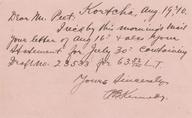 Kortcha, Aug 19, '10.
Dear Mr. Peet,
I rec'd by this morning's mail
your letter of Aug 16th & also your
statement for July 30th containing
Draft No. for L.T.
Yours Sincerely,
Kennedy